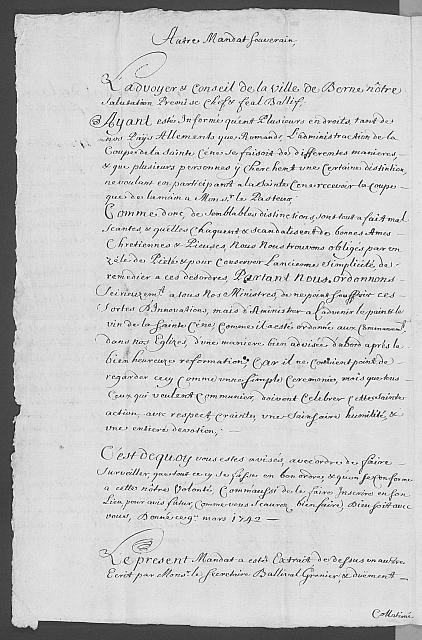 Autre Mandat Souverain,
L'advoyer & Conseil de la Ville de Berne nôtre
Salutation Premise Cher & feal Ballif,
Ayant estés Informé qu'en Plusieurs endroits, tant de
nos Païs Allements que Romands L'administraction de la
Coupe de la Sainte Cène se faisoit de differentes manieres,
& que plusieurs personnes y cherchent une Certaine distinction,
ne voulant en participant a la Sainte Cene recevoir la coupe
que de la main a Monsr. le Pasteur,
Comme donc de Semblables distinctions, sont tout a fait mal
seantes, & qu'elles Choquent & scandalisent de bonnes Ames
Chrétiennes & Pieuses, Nous Nous trouvons obligés par un
zèle de Pieté & pour Conserver Lancienne Simplicité, de
remedier a ces desordres, Partant Nous ordonnons
Serieuzemt. a tous Nos Ministres, de ne point Souffrir ces
Sortes d'Innovations, mais d'Administrer a L'advenir le pain & le
vin de la Sainte Cène, Comme il a estés ordonné aux Communiants
dans nos Eglizes, d'une manière bien advisée d'abord après la
bien heureuze reformation, Car il ne Convient point de
regarder cecy comme une simple Ceremonies, mais que tous
Ceux qui veulent communier, doivent Celebrer cette Sainte
action, avec respect, crainte, une Sainte humilité, &
une entiere devotion, —
C'est de quoy vous estes avisés, avec ordre de faire
Surveiller, que tout cecy se fasse en bon ordre, & qu'on se conforme
a cette nôtre Volonté, Comm'aussi de le faire Inscrire en son
Lieu, pour avis futur, Comme vous Scaurez bien faire, Dieu soit avec
vous, Donné ce 9e. mars 1742 —
Le present Mandat a estés Extrait de dessus un autre
Ecrit par Monsr. le Secretaire Ballival Grenier, & duement —